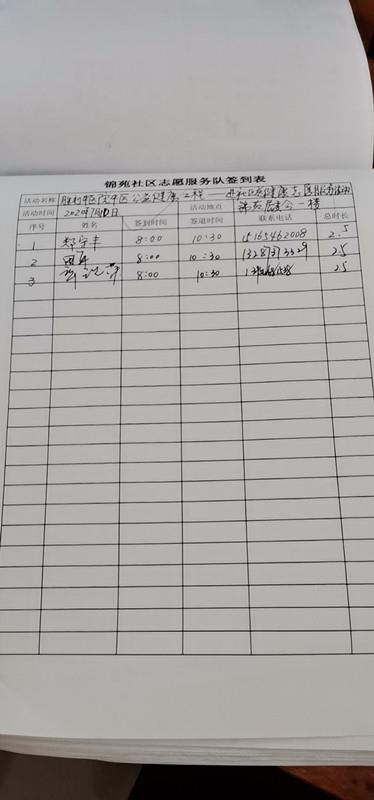 锦苑社区志愿服务队签到表
活动名称 公益健康工程——进社区健康志愿服务活动
活动时间 2020年7月10日 活动地点 锦苑居委会一楼
序号 姓名 签到时间 签退时间 联系电话 总时长
1 郑宝丰 8:00 10:30 15165462008 2.5
2 8:00 10:30 13287373329 2.5
3 8:00 10:30 2.5